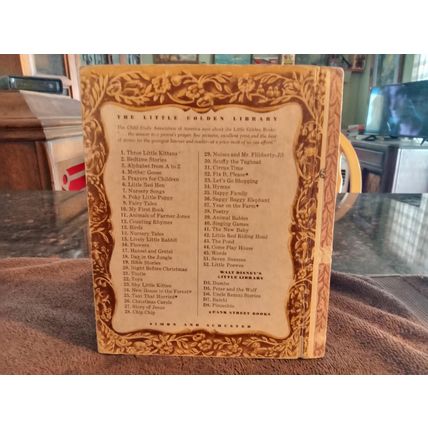 THE LITTLE GOLDEN LIBRARY
The Child Study Association of America says about the Little Golden Books:
"... the answer to a parent's prayer for
1. Three Little Kittens
2. Bedtime Stories
3. Alphabet from A to Z
4. Mother Goose
5. Prayers for Children
6. Little Red Hen
7. Nursery Songs
8. Poky Little Puppy
9. Fairy Tales
10. My First Book
11. Animals of Farmer Jones
12. Counting Rhymes
13. Birds
14. Nursery Tales
15. Lively Little Rabbit
16. Flowers
17. Hansel and Gretel
18. Day in the Jungle
19. Bible Stories
20. Night Before Christmas
21. Tootle
22. Toys
23. Shy Little Kitten
24. New House in the Forest
25. Taxi That Hurried
26. Christmas Carols
27. Story of Jesus
28. Chip Chip
29. Noises and Mr. Flibberty-Jib
30. Scuffy the Tugboat
31. Circus Time
32. Fix It, Please
33. Let's Go Shopping
34. Hymns
35. Happy Family
36. Saggy Baggy Elephant
37. Year on the Farm
38. Poetry
39. Animal Babies
40. Singing Games
41. The New Baby
42. Little Red Riding Hood
43. The Pond
44. Come Play House
45. Words
51. Seven Sneezes
52. Little Peewee
WALT DISNEY'S
LITTLE LIBRARY
D3. Dumbo
D5. Peter and the Wolf
D6. Uncle Remus Stories
D7. Bambi
D8. Pinocchio
BANK STREET BOOKS
SIMON AND SCHUSTER